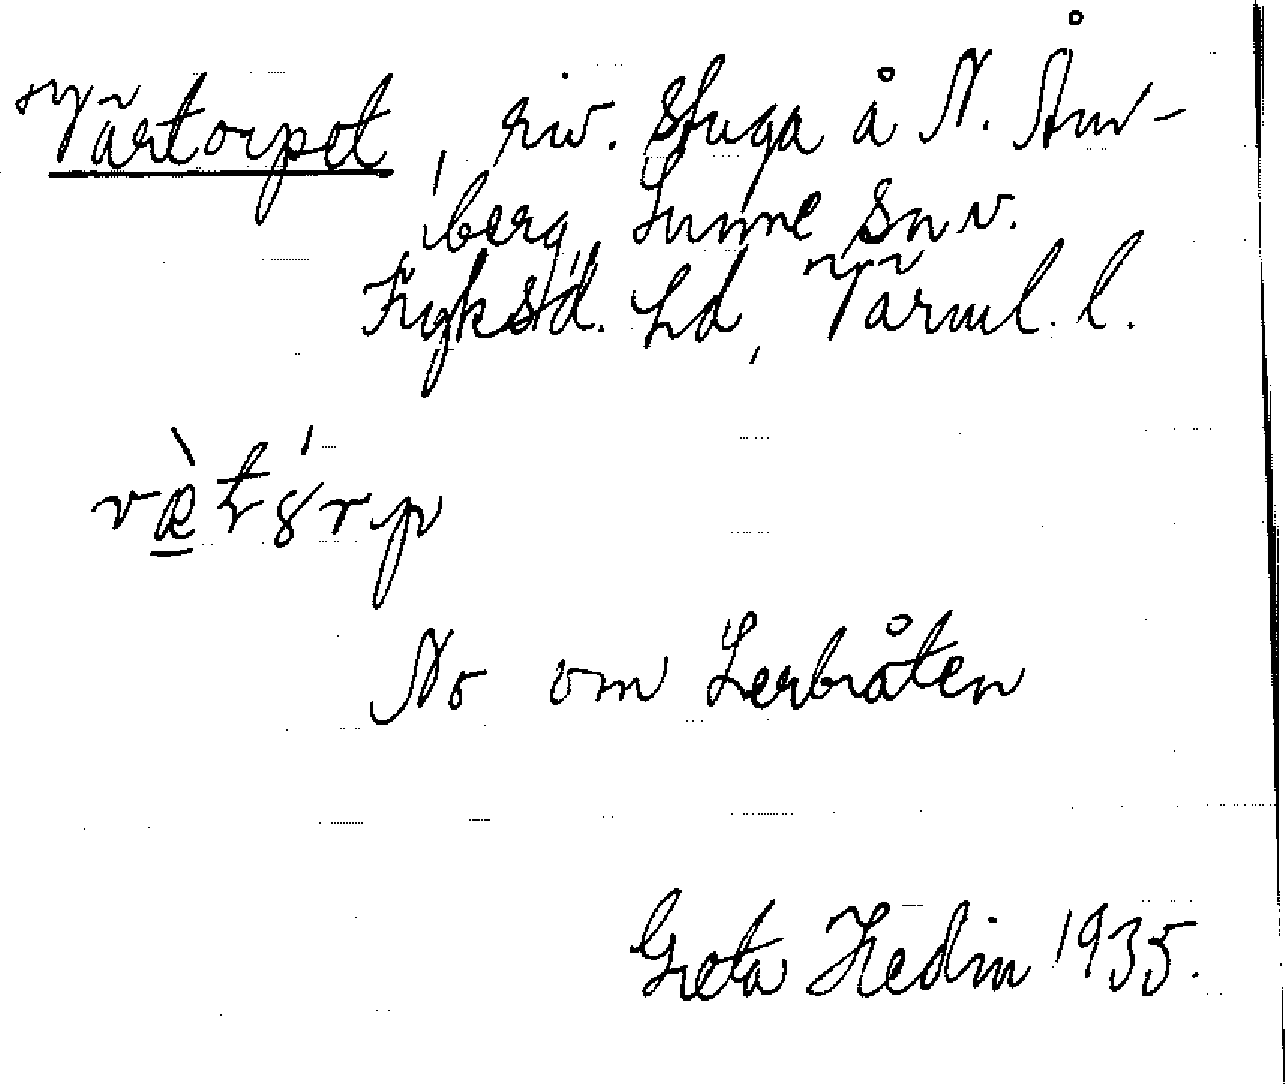 Värtorpet, riv. stuga å N. Åm-
berg, Sunne sn v.
Fryksd. hd, Värml. l.
No om Lerbråten
Greta Hedin 1935.